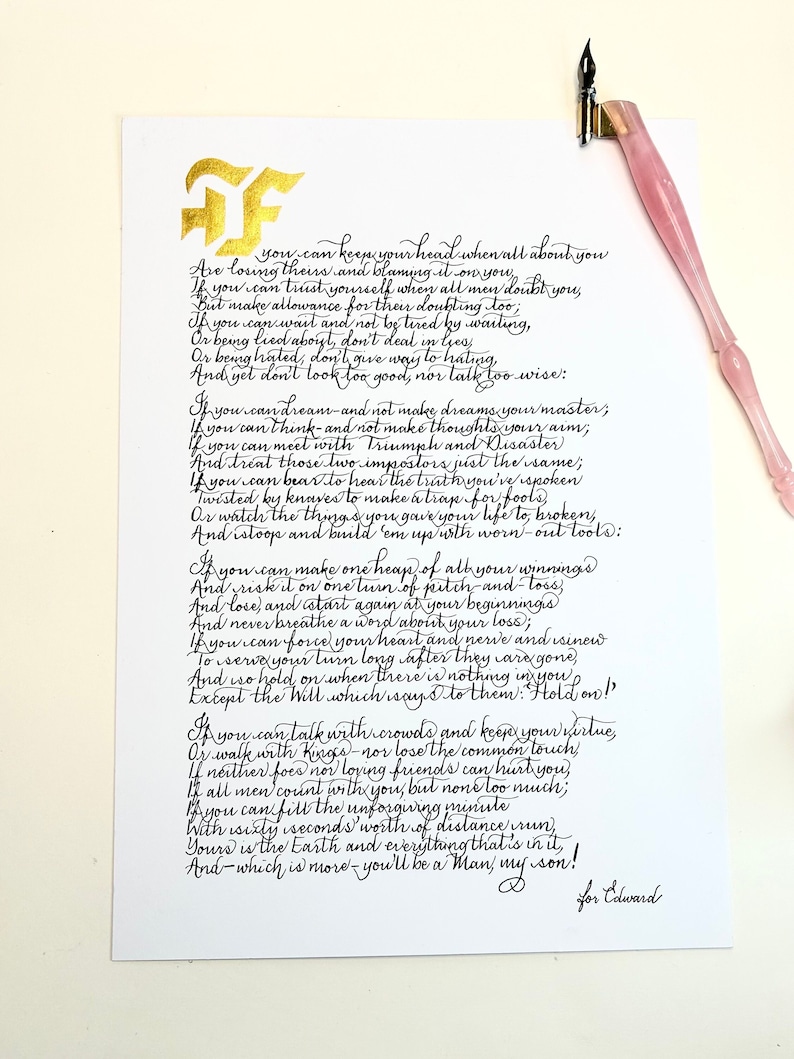 If
you can keep your head when all about you
Are losing theirs and blaming it on you,
If you can trust yourself when all men doubt you,
But make allowance for their doubting too;
If you can wait and not be tired by waiting,
Or being lied about, don't deal in lies,
Or being hated, don't give way to hating,
And yet don't look too good, nor talk too wise:
If you can dream-and not make dreams your master;
If you can think-and not make thoughts your aim;
If you can meet with Triumph and Disaster
And treat those two impostors just the same;
If you can bear to hear the truth you've spoken
Twisted by knaves to make a trap for fools,
Or watch the things you gave your life to, broken,
And stoop and build 'em up with worn-out tools:
If you can make one heap of all your winnings
And risk it on one turn of pitch-and-toss,
And lose, and start again at your beginnings
And never breathe a word about your loss;
If you can force your heart and nerve and sinew
To serve your turn long after they are gone,
And so hold on when there is nothing in you
Except the Will which says to them: 'Hold on!'
If you can talk with crowds and keep your virtue,
Or walk with Kings-nor lose the common touch,
If neither foes nor loving friends can hurt you,
If all men count with you, but none too much;
If you can fill the unforgiving minute
With sixty seconds' worth of distance run,
Yours is the Earth and everything that's in it,
And-which is more-you'll be a Man, my son!
for Edward